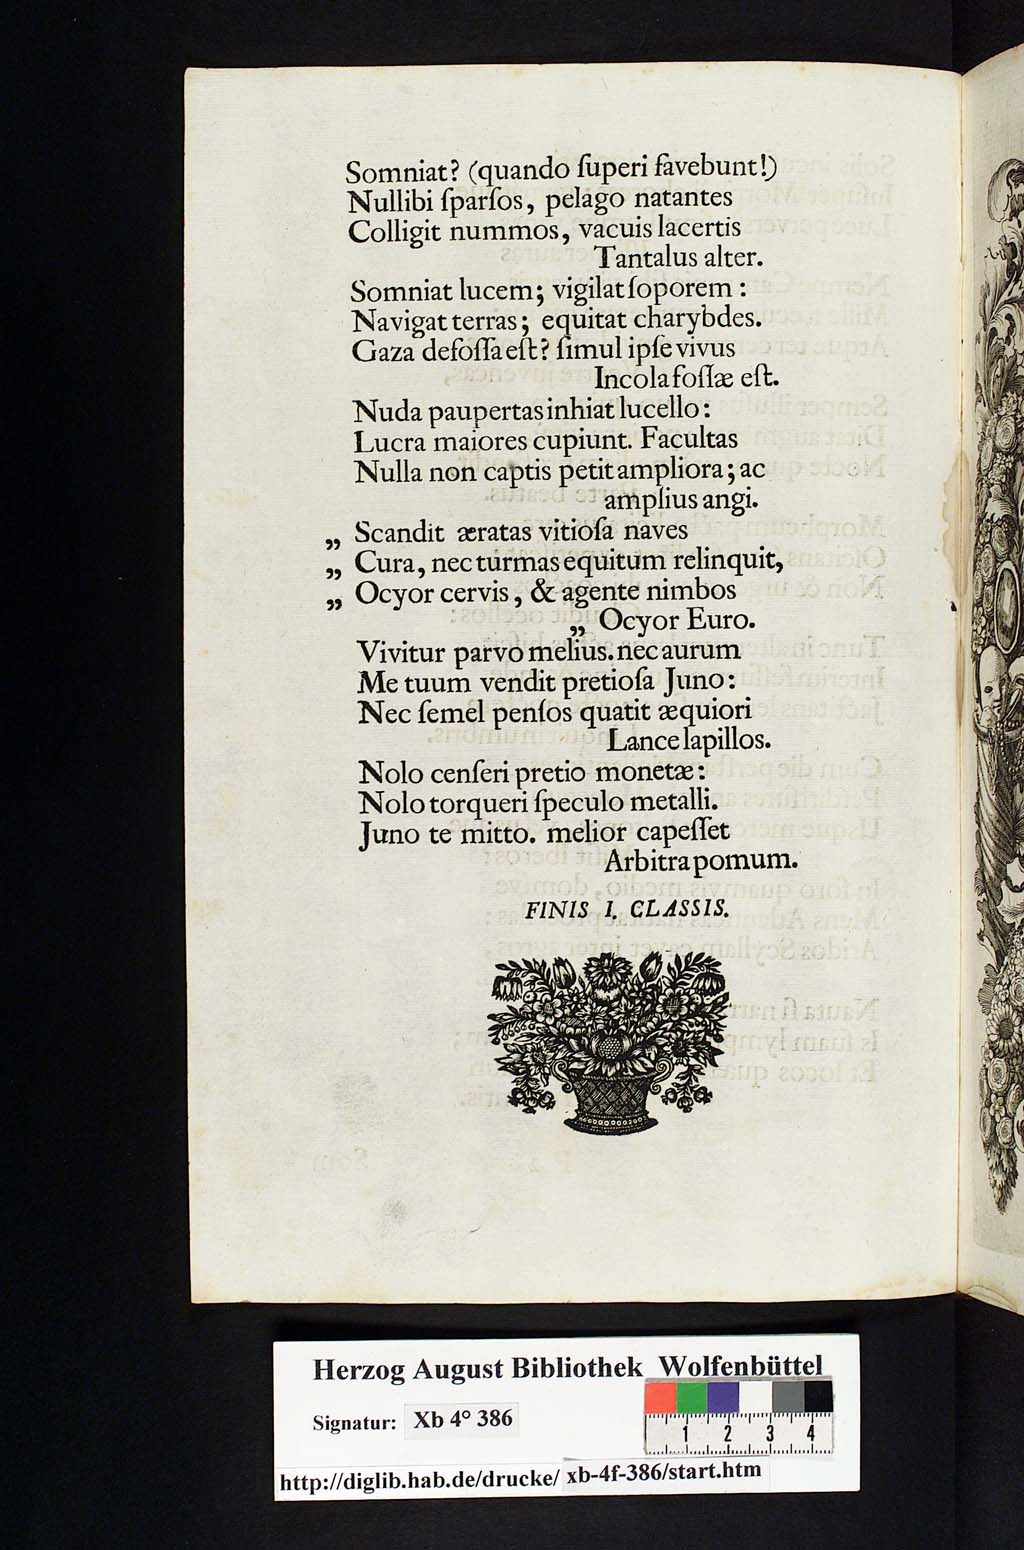 Somniat? (quando ſuperi favebunt!)
Nullibi ſparſos, pelago natantes
Colligit nummos, vacuis lacertis
Tantalus alter.
Somniat lucem; vigilat ſoporem:
Navigat terras; equitat charybdes.
Gaza defoſſa eſt? ſimul ipſe vivus
Incola foſſæ eſt.
Nuda paupertas inhiat lucello:
Lucra maiores cupiunt. Facultas
Nulla non captis petit ampliora; ac
amplius angi.
„ Scandit æratas vitioſa naves
„ Cura, nec turmas equitum relinquit,
„ Ocyor cervis, & agente nimbos
„ Ocyor Euro.
Vivitur parvo melius. nec aurum
Me tuum vendit pretioſa Juno:
Nec ſemel penſos quatit æquiori
Lance lapillos.
Nolo cenſeri pretio monetæ:
Nolo torqueri ſpeculo metalli.
Juno te mitto. melior capeſſet
Arbitra pomum.
FINIS I. CLASSIS.
Herzog August Bibliothek Wolfenbüttel
Signatur: Xb 4° 386
1 2 3 4
http://diglib.hab.de/drucke/ xb-4f-386/start.htm